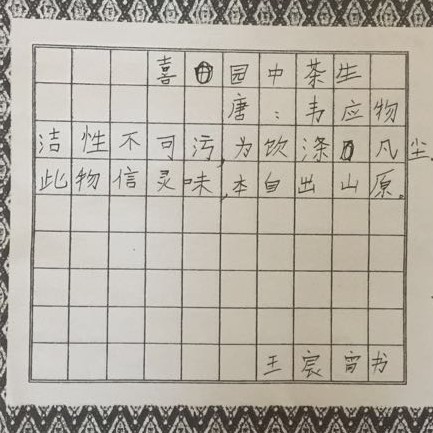 喜园中茶生
唐:韦应物
洁性不可污,为饮涤凡尘。
此物信灵味,本自出山原。
王宸宵书